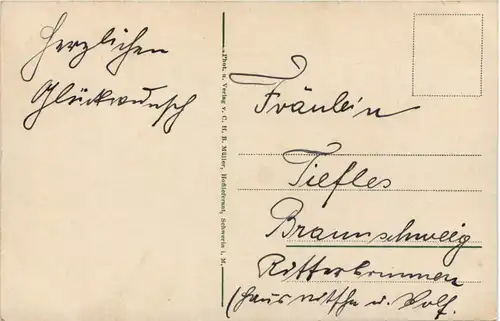 Herzlichen
Glückwunsch
Phot. u. Verlag v. C. H. B. Müller, Hoflieferant, Schwerin i. M.
Fräulein
Tiefles
Braunschweig
Ritterbrunnen
(Haus u. Wolf.